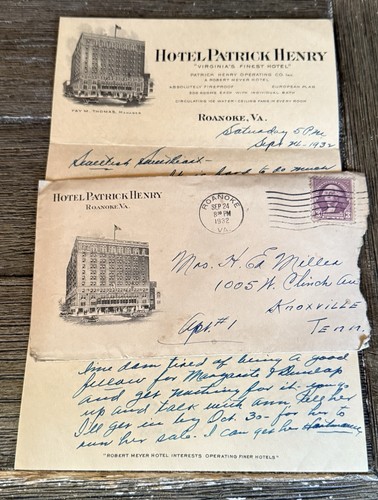 HOTEL PATRICK HENRY
"VIRGINIA'S FINEST HOTEL"
PATRICK HENRY OPERATING CO INC
A ROBERT MEYER HOTEL
ABSOLUTELY FIREPROOF EUROPEAN PLAN
300 ROOMS EACH WITH INDIVIDUAL BATH
CIRCULATING ICE WATER - CEILING FANS IN EVERY ROOM
THOMAS, MANAGER
ROANOKE, VA.
Saturday 5 P.M.
Sept 24. 1932
Sweetest Sweetheart -
is hard to do much
HOTEL PATRICK HENRY
ROANOKE, VA.
ROANOKE
SEP 24
8 PM
1932
VA.
Mrs. H. Ed Miller
1005 W. Clinch Ave
Knoxville
Tenn.
Apt. #1
I'me dam tired of being a good
fellow for Marguerite & Dunlap
and get nothing for it. you go
up and talk with Ann. Tell her
I'll get in by Oct. 30 - for her to
run her sale. I can get her
"ROBERT MEYER HOTEL INTERESTS OPERATING FINER HOTELS"